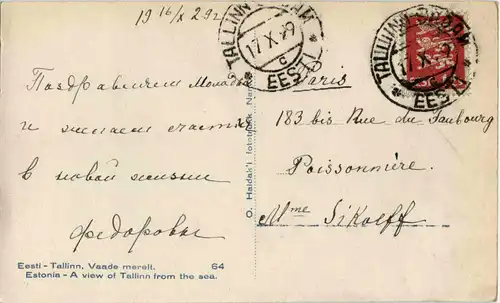 19 16/X 29 г.
TALLINN-SADAM
17. X. 29
C
EESTI
TALLINN-SADAM
17. X. 29
C
EESTI
Поздравляем Молодых
и желаем счастья
в новой жизни
Федоровы
Paris
183 bis Rue du Faubourg
Poissonnière.
Mme Sikoleff
O. Haidak'i fototrükk, Nar
Eesti - Tallinn. Vaade merelt. 64
Estonia - A view of Tallinn from the sea.